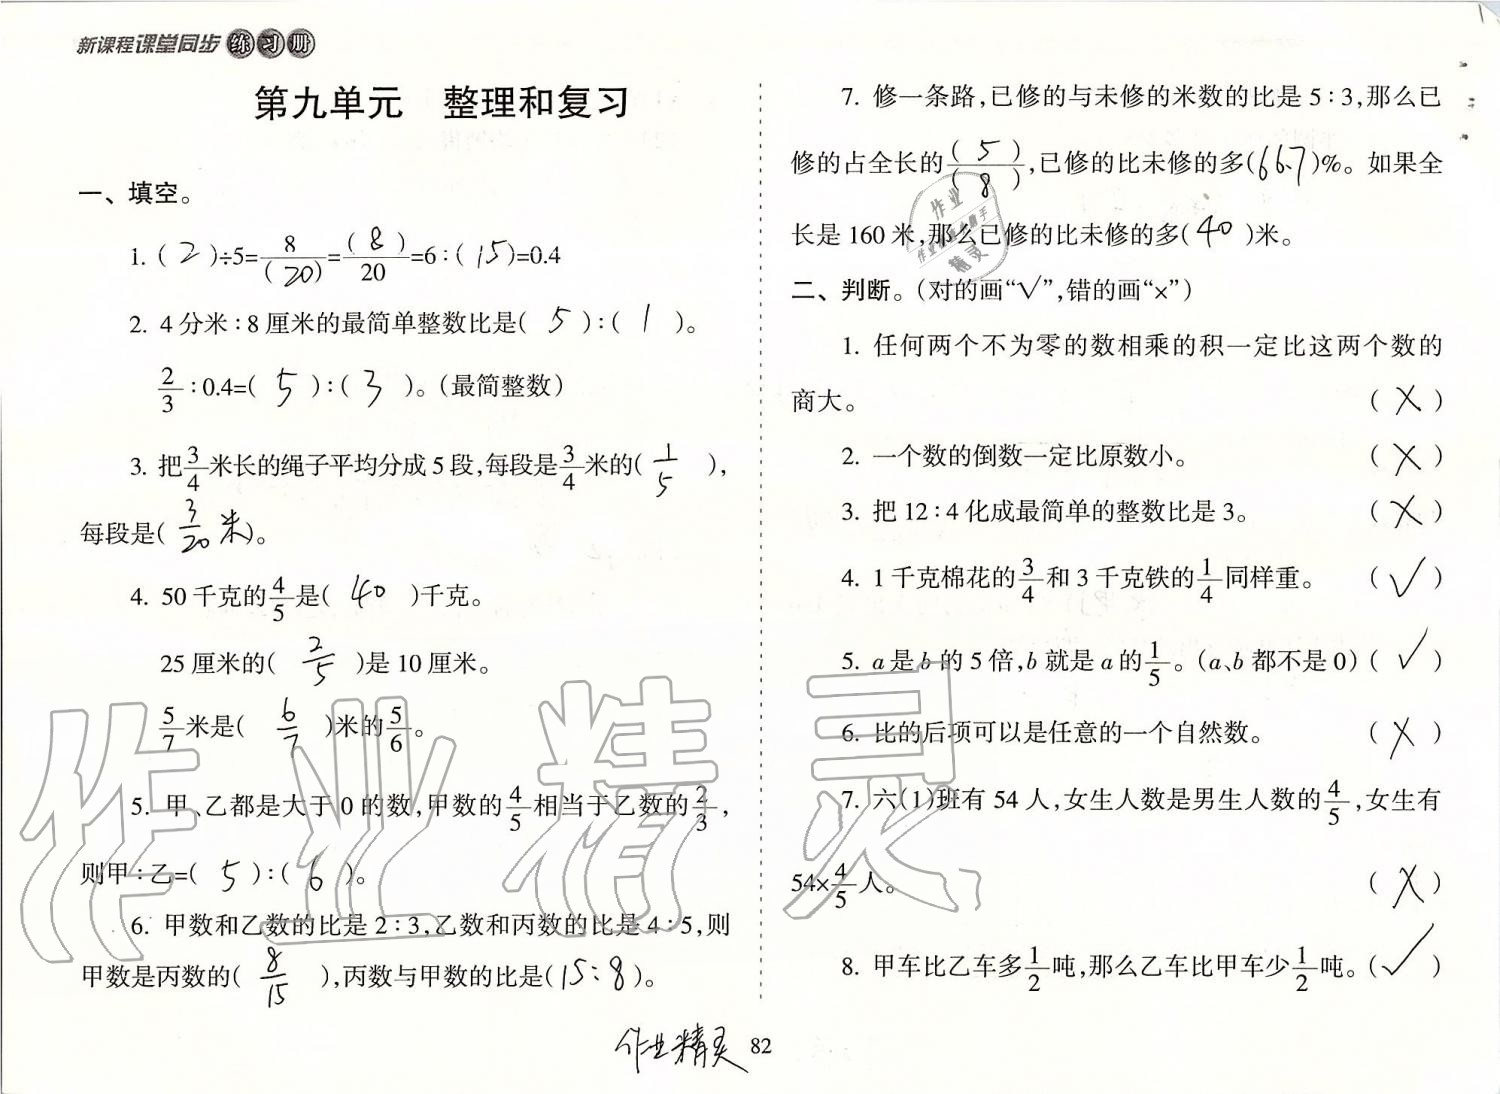 新课程课堂同步练习册
第九单元 整理和复习
一、填空。
1. ( 2 )÷5=8/( 20 )=( 8 )/20=6∶( 15 )=0.4
2. 4分米∶8厘米的最简单整数比是( 5 )∶( 1 )。
2/3∶0.4=( 5 )∶( 3 )。(最简整数)
3. 把3/4米长的绳子平均分成5段,每段是3/4米的( 1/5 ),
每段是( 3/20 米)。
4. 50千克的4/5是( 40 )千克。
25厘米的( 2/5 )是10厘米。
5/7米是( 6/7 )米的5/6。
5. 甲、乙都是大于0的数,甲数的4/5相当于乙数的2/3,
则甲∶乙=( 5 )∶( 6 )。
6. 甲数和乙数的比是2∶3,乙数和丙数的比是4∶5,则
甲数是丙数的( 8/15 ),丙数与甲数的比是(15∶8)。
7. 修一条路,已修的与未修的米数的比是5∶3,那么已
修的占全长的( 5 )/( 8 ),已修的比未修的多(66.7)%。如果全
长是160米,那么已修的比未修的多( 40 )米。
二、判断。(对的画“√”,错的画“×”)
1. 任何两个不为零的数相乘的积一定比这两个数的
商大。 ( × )
2. 一个数的倒数一定比原数小。 ( × )
3. 把12∶4化成最简单的整数比是3。 ( × )
4. 1千克棉花的3/4和3千克铁的1/4同样重。 ( √ )
5. a是b的5倍,b就是a的1/5。(a、b都不是0) ( √ )
6. 比的后项可以是任意的一个自然数。 ( × )
7. 六(1)班有54人,女生人数是男生人数的4/5,女生有
54×4/5人。 ( × )
8. 甲车比乙车多1/2吨,那么乙车比甲车少1/2吨。( √ )
作业精灵
82
作业精灵